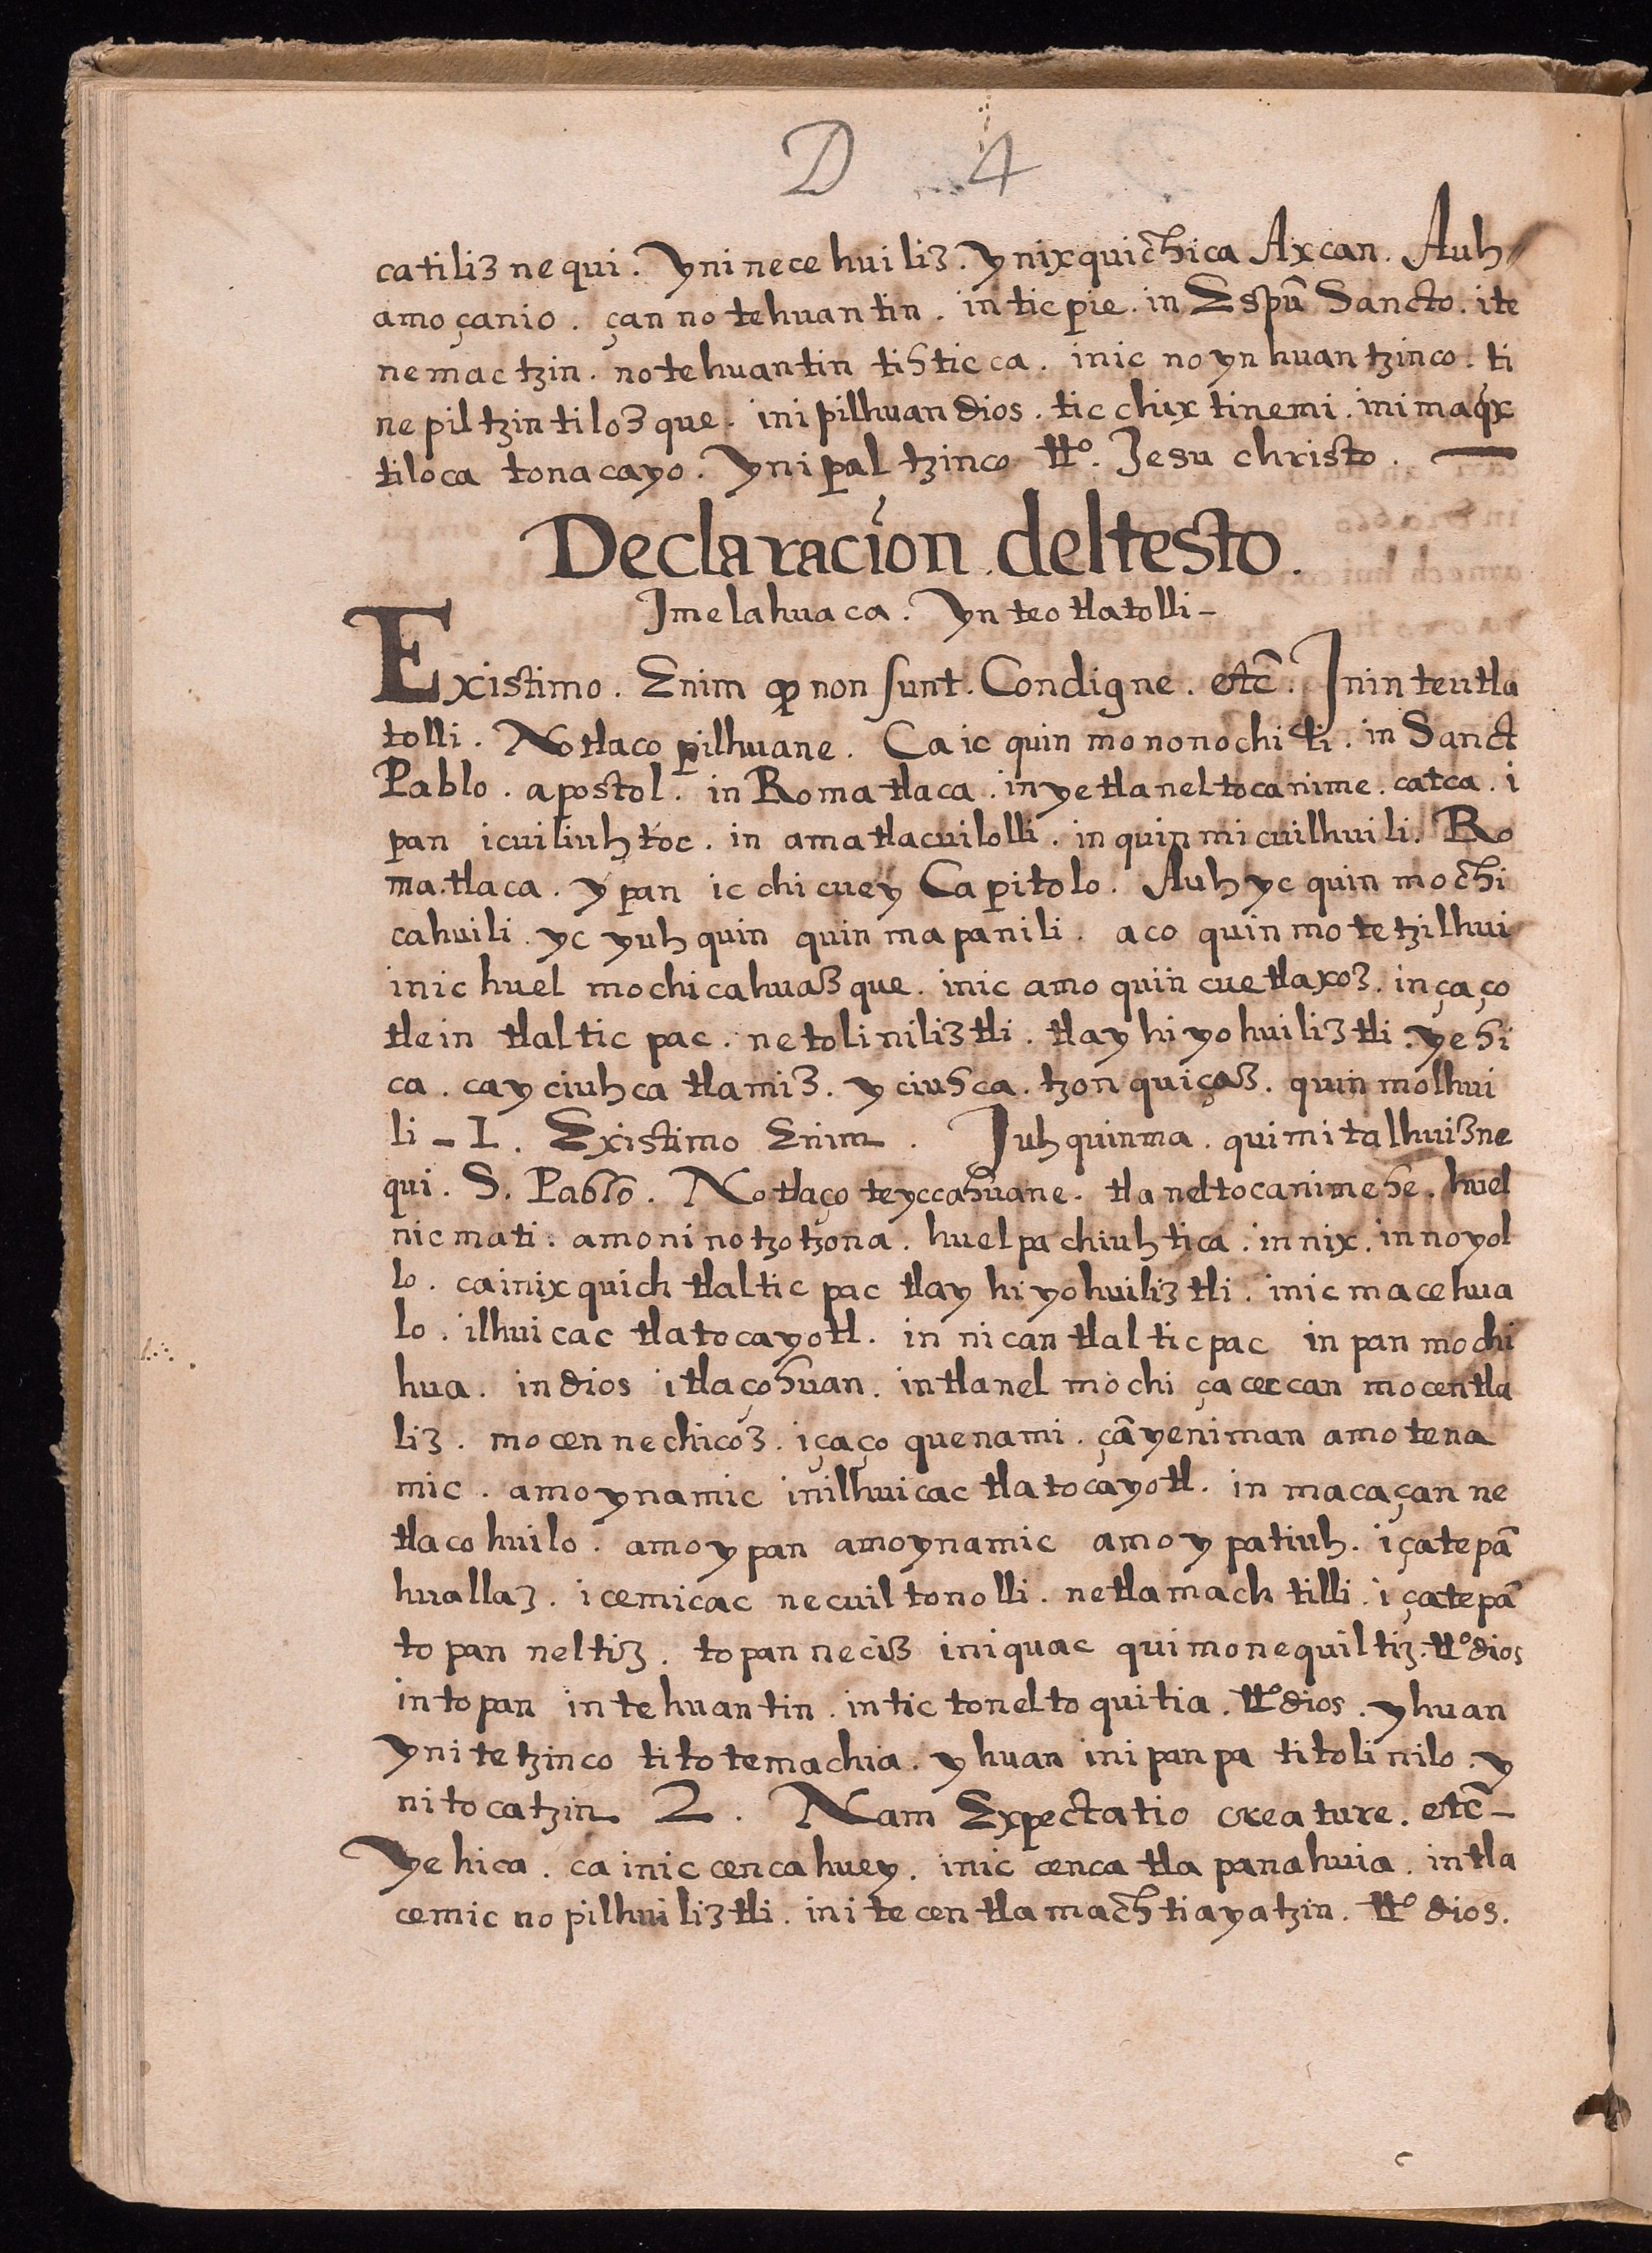 D 4
catiliz nequi. Yninecehuiliz. Ynixquichica Axcan. Auh
amo çanio. çan no tehuantin. in ticpie. in Espũ Sancto. ite
nemactzin. notehuantin tihticca. inic no ynhuantzinco. ti
nepiltzintilozque. inipilhuan dios. tic chixtinemi. inimaqx
tiloca tonacayo. Ynipaltzinco tto. Jesu christo.
Declaracion deltesto.
Jmelahuaca. Yn teotlatolli-
Existimo. Enim qp non sunt. Condigne. etc̃. Jnin teutla
tolli. Notlaco pilhuane. Ca ic quin mononochili. in Sanct
Pablo. apostol. in Romatlaca. inyetlaneltocanime. catca. i
pan icuiliuhtoc. in amatlacuilolli. inquinmicuilhuili. Ro
ma.tlaca. ypan ic chicuey Capitolo. Auh yc quin mochi
cahuili. yc yuhquin quinmapanili. aco quinmotetzilhui
inic huel mochicahuazque. inic amo quin cuetlaxoz. inçaço
tlein tlalticpac. netoliniliztli. tlayhiyohuiliztli. yehi
ca. cayciuhca tlamiz. yciuhca. tzonquiçaz. quinmolhui
li - 1. Existimo Enim. Juhquinma. quimitalhuizne
qui. S. Pablo. Notlaço teyccahuane. tlaneltocanimehe. huel
nicmati. amoninotzotzona. huelpachiuhtica. innix. innoyol
lo. cainixquich tlalticpac tlayhiyohuiliztli. inic macehua
lo. ilhuicac tlatocayotl. in nican tlalticpac in pan mochi
hua. in dios itlaçohuan. intlanel mochi çaceccan mocentla
liz. mocennechicoz. içaço quenami. çãyeniman amo tena
mic. amoynamic inilhuicac tlatocayotl. in macaçan ne
tlacohuilo. amoypan amoynamic amo ypatiuh. içatepã
huallaz. icemicac necuiltonolli. netlamachtilli. içatepã
topan neltiz. topan neciz iniquac quimonequiltiz. tto dios
intopan intehuantin. intic toneltoquitia. tto dios. yhuan
ynitetzinco titotemachia. yhuan inipanpa titolinilo. y
nitocatzin 2. Nam Expectatio creature. etc̃-
Yehica. ca inic cencahuey. inic cenca tlapanahuia. intla
cemicnopilhuiliztli. initecentlamachtiayatzin. tto dios.